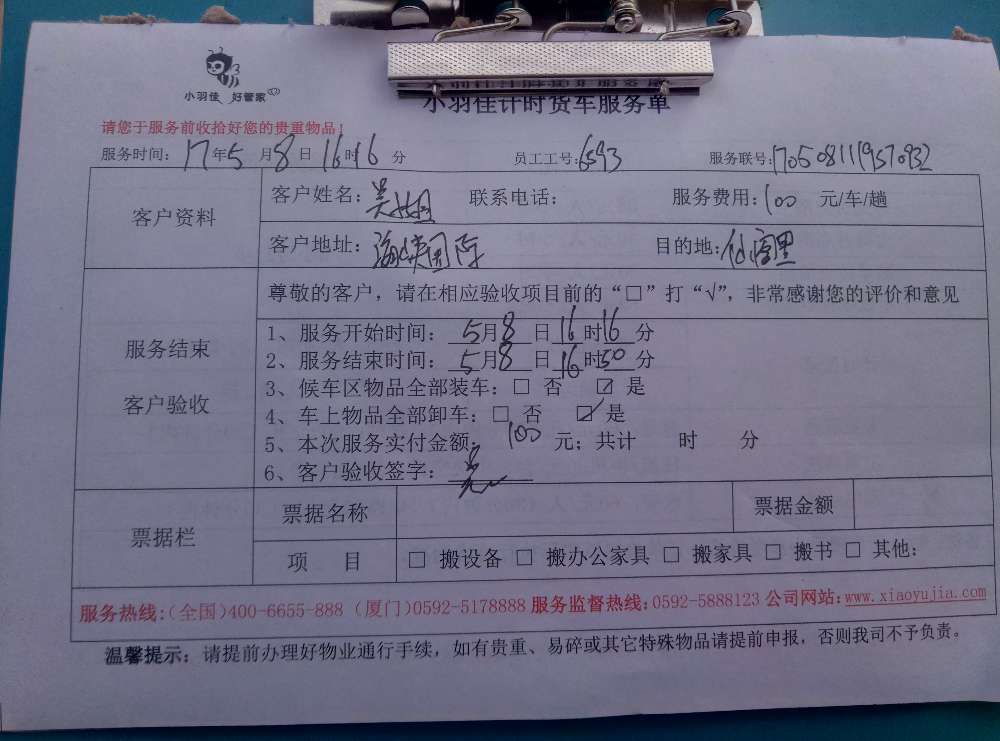 小羽佳 好管家
小羽佳计时货车服务单
请您于服务前收拾好您的贵重物品!
服务时间: 17年5月8日16时16分 员工工号:6593 服务联号:1705081119370932
客户资料
客户姓名: 吴姐 联系电话: 服务费用:100 元/车/趟
客户地址: 海峡国际 目的地:仙富里
尊敬的客户，请在相应验收项目前的“□”打“√”，非常感谢您的评价和意见
服务结束
客户验收
1、服务开始时间: 5月8日16时16分
2、服务结束时间: 5月8日16时50分
3、候车区物品全部装车: □ 否 ☑ 是
4、车上物品全部卸车: □ 否 ☑ 是
5、本次服务实付金额: 100 元; 共计 时 分
6、客户验收签字: 吴
票据栏
票据名称 票据金额
项 目 □ 搬设备 □ 搬办公家具 □ 搬家具 □ 搬书 □ 其他:
服务热线:(全国)400-6655-888 (厦门)0592-5178888 服务监督热线:0592-5888123 公司网站:www.xiaoyujia.com
温馨提示: 请提前办理好物业通行手续，如有贵重、易碎或其它特殊物品请提前申报，否则我司不予负责。